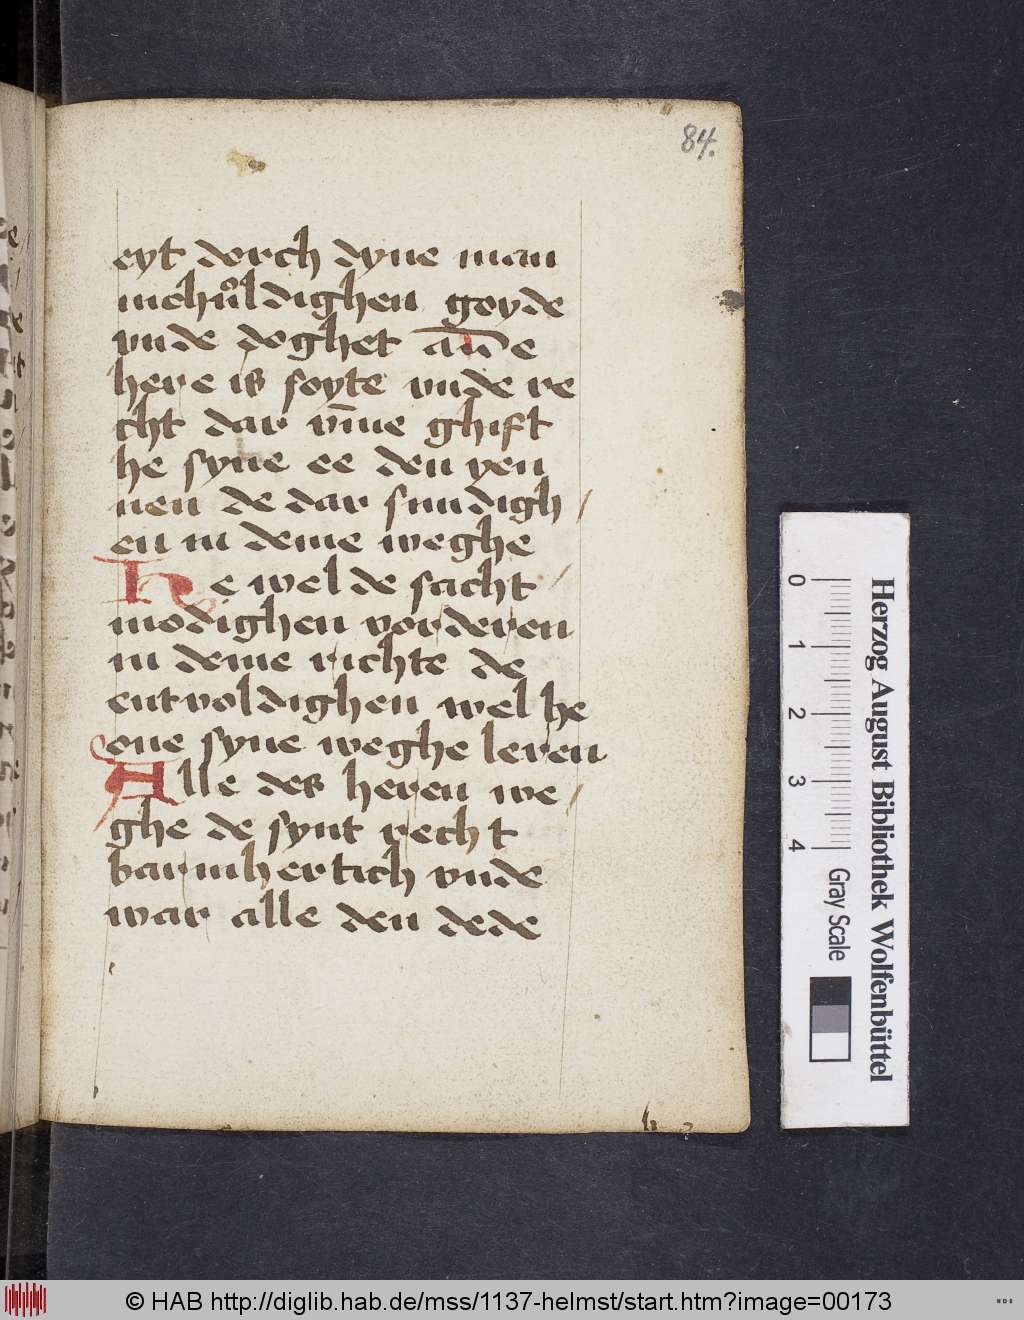 84.
eyt dorch dyne man
nichuͦldighen goyde
vnde doghet an̄e
here is soyte vnde re
cht dar vm̄e ghift
he syne ee den yen
nen de dar sundigh
en in deme weghe
He wel de sacht
modighen vorderen
in deme richte de
entvoldighen wel he
one syne weghe leren
Alle des heren we
ghe de synt recht
barmhertich vnde
war alle den dede
Herzog August Bibliothek Wolfenbüttel
0 1 2 3 4
Gray Scale
© HAB http://diglib.hab.de/mss/1137-helmst/start.htm?image=00173